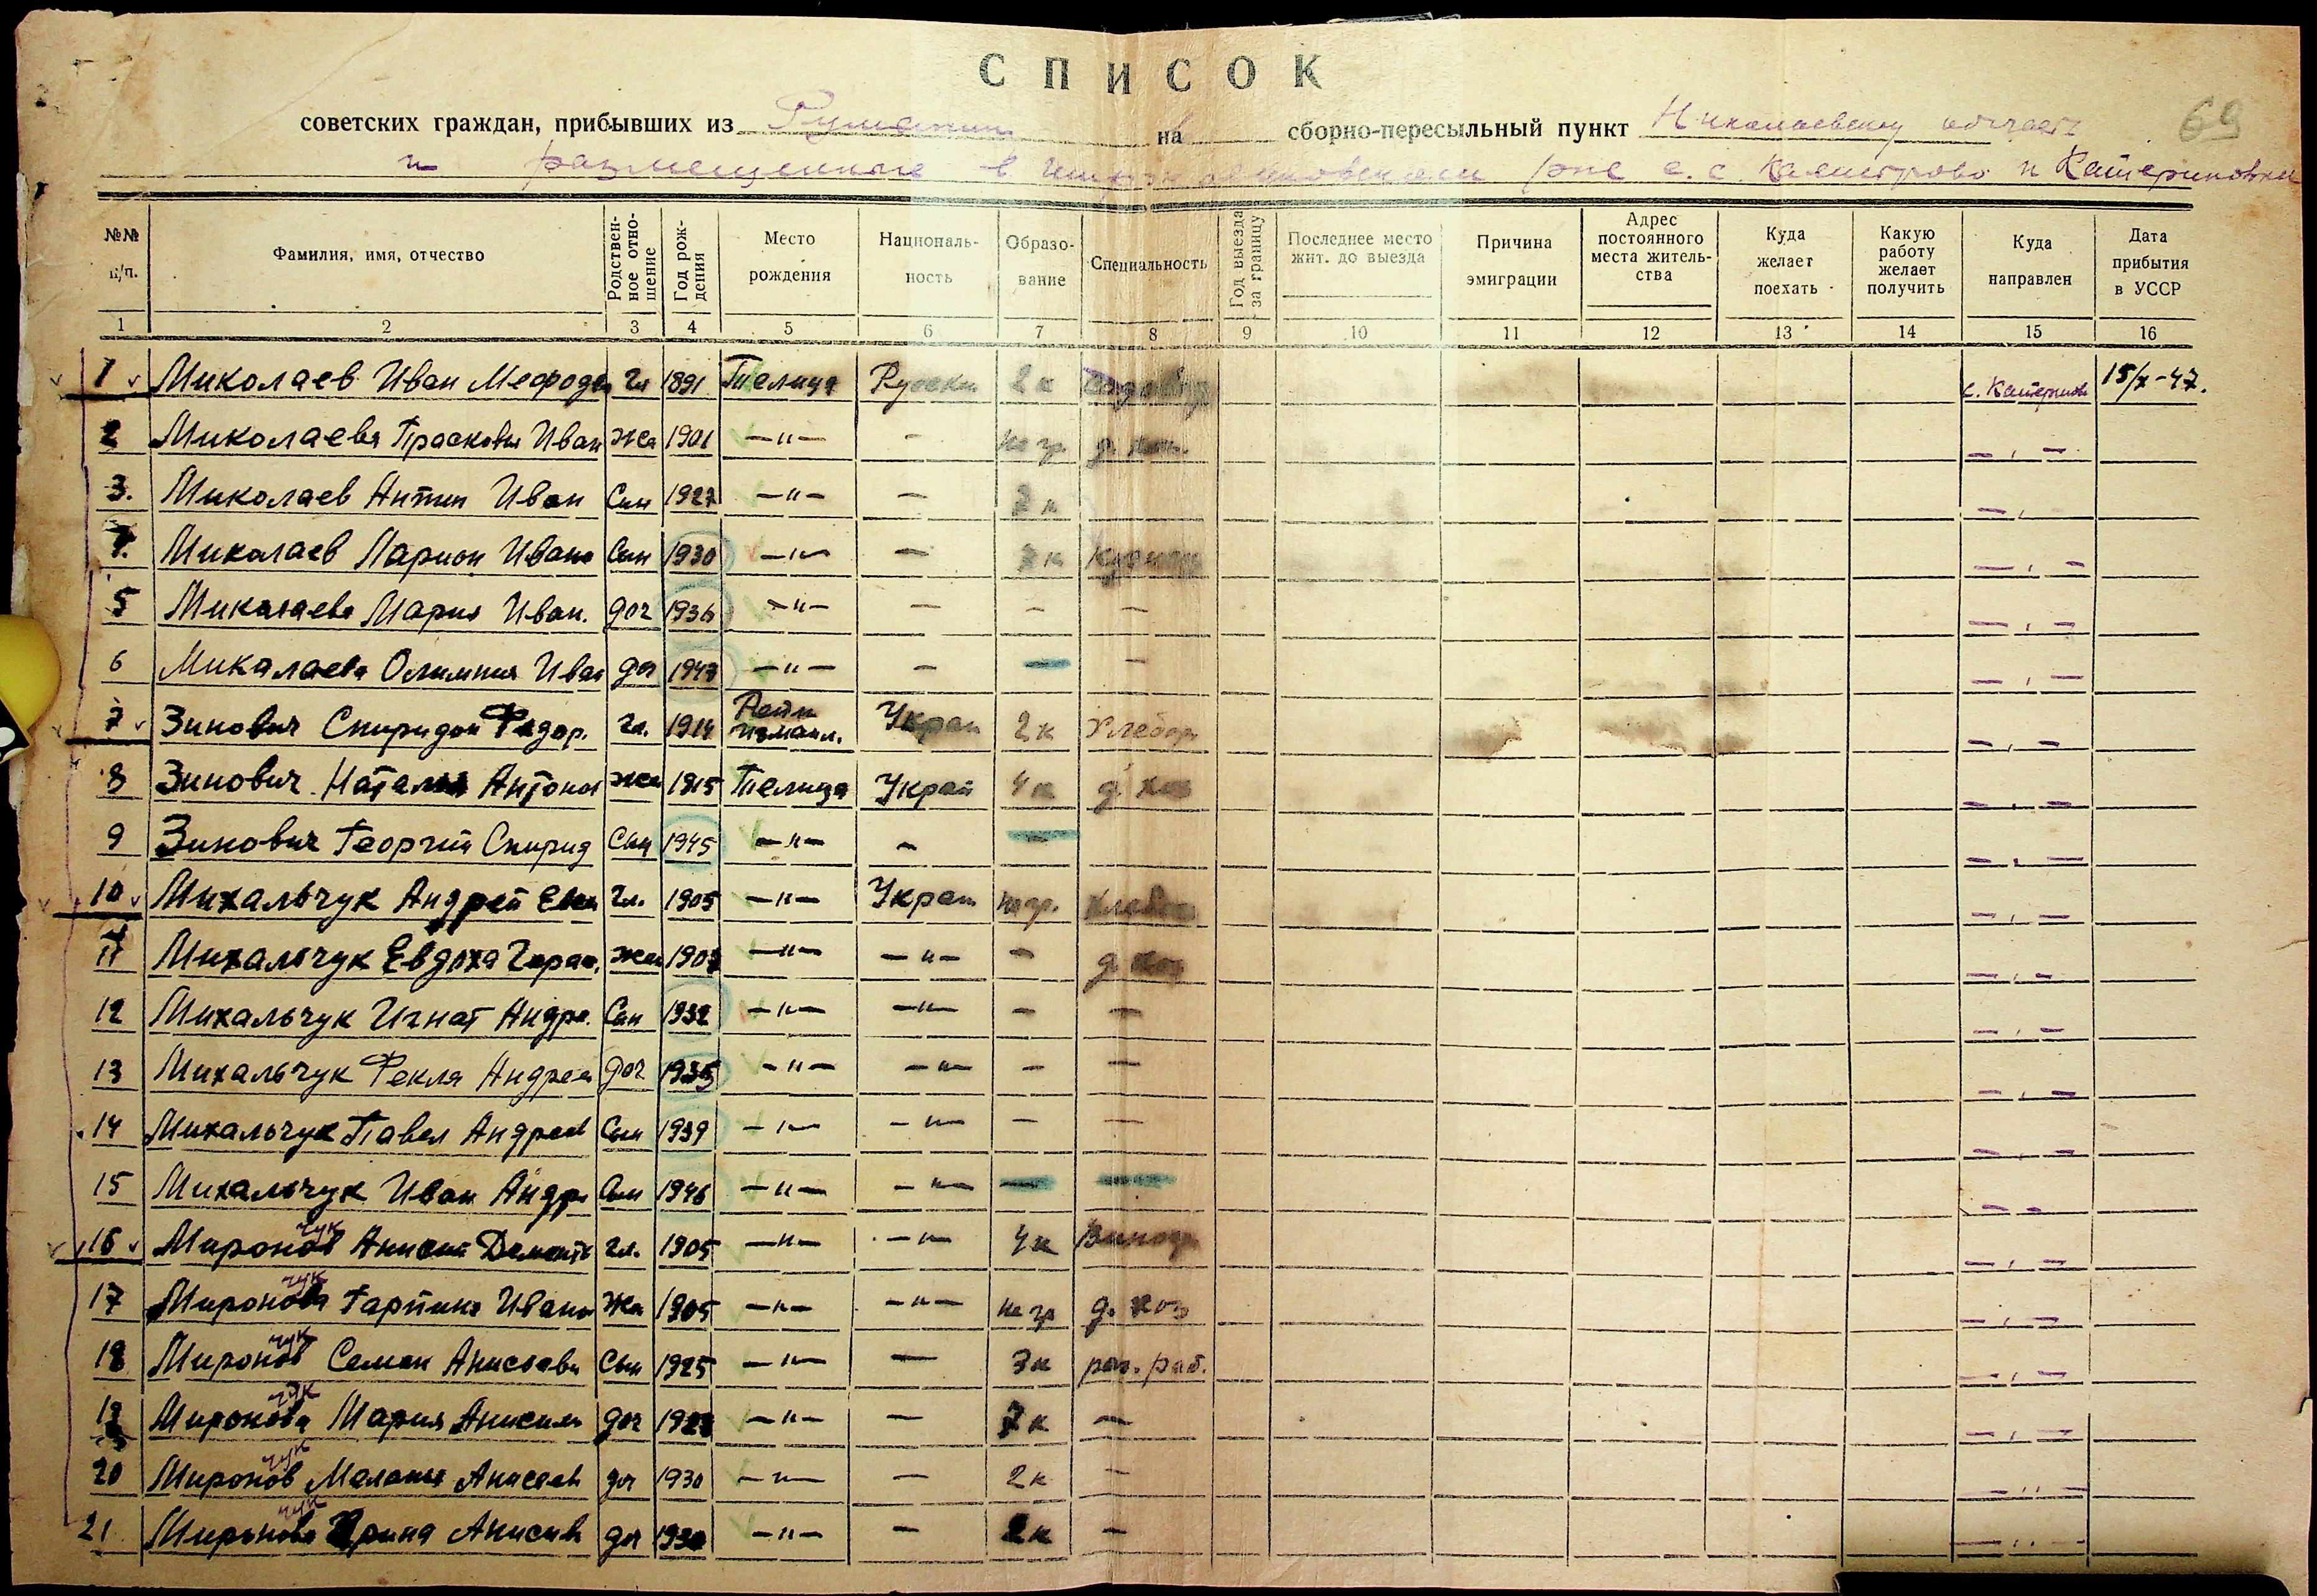 СПИСОК
69
советских граждан, прибывших из Румынии на сборно-пересыльный пункт Николаевскую область
и размещенные в с. с. Калистрово и Катериновки
№№ п/п. Фамилия, имя, отчество Родственное отношение Год рождения Место рождения Националь-ность Образо-вание Специальность Год выезда за границу Последнее место жит. до выезда Причина эмиграции Адрес постоянного места житель-ства Куда желает поехать Какую работу желает получить Куда направлен Дата прибытия в УССР
1 2 3 4 5 6 7 8 9 10 11 12 13 14 15 16
1 Миколаев Иван Мефоде Гл 1891 Телица Русски 2 к садовод с. Катеринов 15/X-47.
2 Миколаева Прасковья Иван жа 1901 —"— - не гр. д. хоз. — " —
3. Миколаев Антип Иван Сын 1927 —"— — 7 к — " —
4. Миколаев Ларион Ивано Сын 1930 —"— — 7 к — " —
5 Миколаева Мария Иван. доч 1936 —"— — — — — " —
6 Миколаева Олимпия Иван доч —"— — — — — " —
7 Зинович Спиридон Федор. Гл. 1914 Рени Измаил. Украи 2 к Хлебор — " —
8 Зинович Наталья Антонов жа 1915 Телица Украй 4 к д. хоз — " —
9 Зинович Георгий Спирид Сын 1945 —"— — — — " —
10 Михальчук Андрей Гл. 1905 —"— Украи не гр. Хлебор — " —
11 Михальчук Евдоха Герас. жа —"— —"— — д. хоз — " —
12 Михальчук Игнат Андре. Сын 1932 —"— —"— — — — " —
13 Михальчук Фекля Андрее доч 1935 —"— —"— — — — " —
14 Михальчук Павел Андреев Сын 1939 —"— —"— — — — " —
15 Михальчук Иван Андр Сын 1946 —"— —"— — — — " —
чук
16 Миронов Анисий Демент Гл. 1905 —"— —"— 4 к Виногр — " —
чук
17 Миронова Гарпина Ивано Жа 1905 —"— —"— не гр д. хоз — " —
чук
18 Миронов Семен Анисоеви Сын 1925 —"— — 3 к раз. раб. — " —
чук
19 Миронова Мария Анисим доч —"— — 7 к — — " —
чук
20 Миронов Меланья Анисеев доч 1930 —"— — 2 к — — " —
чук
21 Миронова Ирина Анисив доч —"— — 2 к — — " —